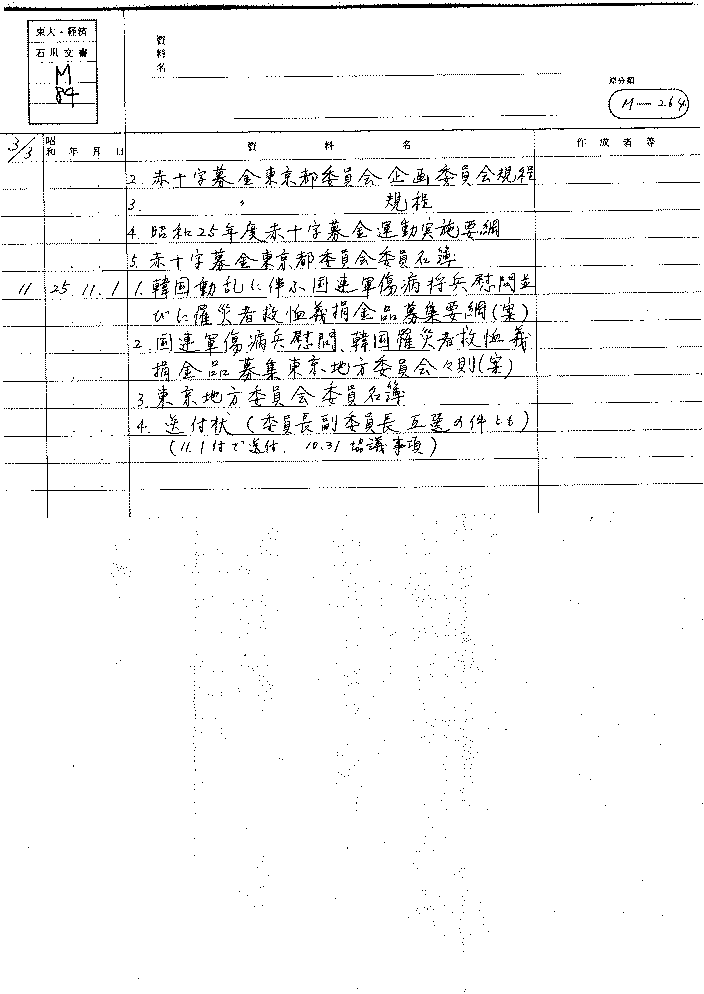 東大・経済
石川文書
M
84
資料名
原分類
M-264
3/3 昭和 年 月 日 資料名 作成者等
2. 赤十字募金東京都委員会企画委員会規程
3. 〃 規程
4. 昭和25年度赤十字募金運動実施要綱
5. 赤十字募金東京都委員会委員名簿
11 25 11. 1 1. 韓国動乱に伴ふ国連軍傷病将兵慰問並
びに罹災者救恤義捐金品募集要綱(案)
2. 国連軍傷病兵慰問、韓国罹災者救恤義
捐金品募集東京地方委員会々則(案)
3. 東京地方委員会委員名簿
4. 送付状(委員長副委員長互選の件とも)
(11.1付で送付. 10.31協議事項)